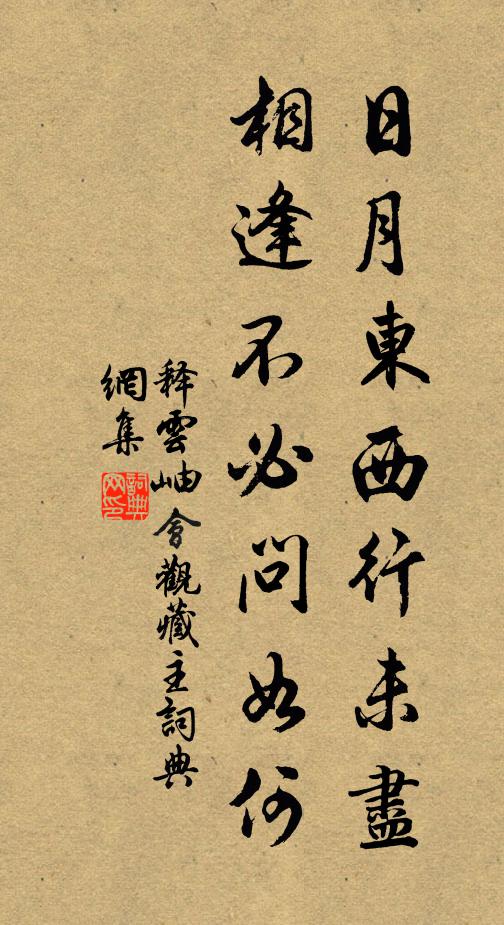 日月東西行未盡
相逢不必問如何
释雲岫會觀藏主詞典
網集
詞典
网印